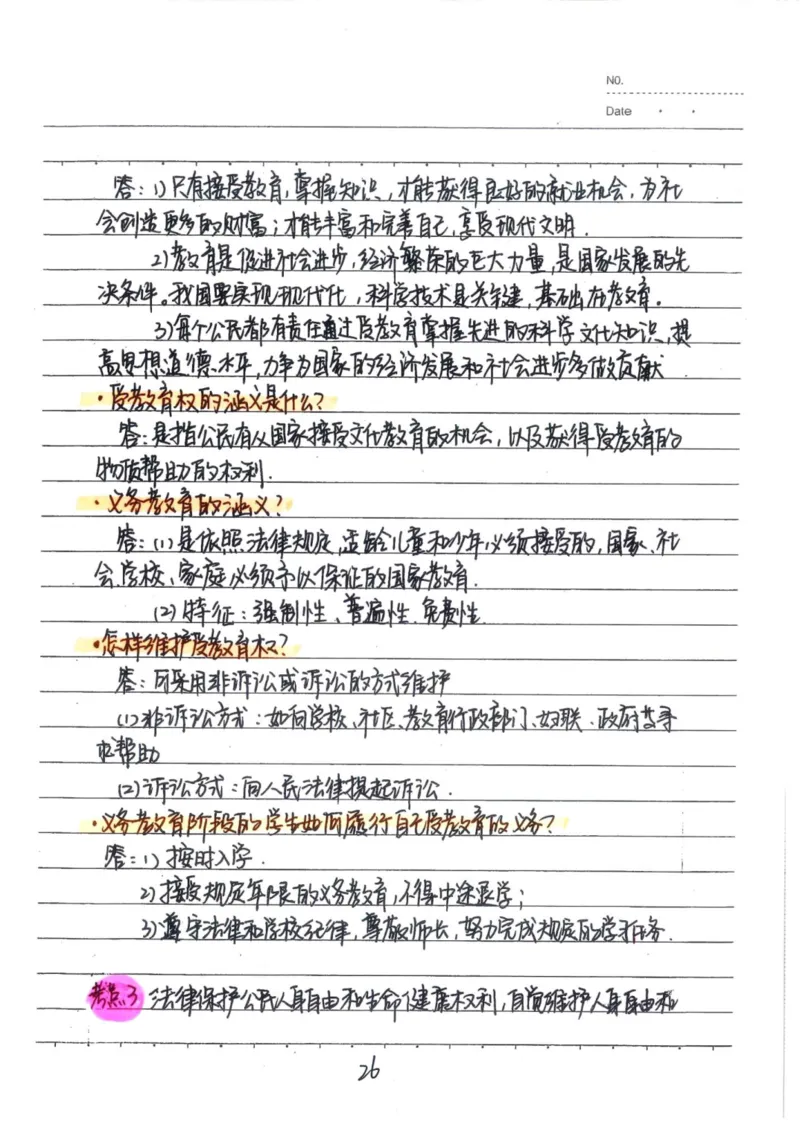 NO.
Date
答：1)只有接受教育，掌握知识，才能获得良好的就业机会，为社
会创造更多的财富；才能丰富和完善自己，享受现代文明．
2)教育是促进社会进步，经济繁荣的巨大力量，是国家发展的先
决条件。我国要实现现代化，科学技术是关键，基础在教育。
3)每个公民都有责任通过受教育掌握先进的科学文化知识，提
高思想道德水平，力争为国家的经济发展和社会进步多做贡献．
·受教育权的涵义是什么？
答：是指公民有从国家接受文化教育的机会，以及获得受教育的
物质帮助的权利．
·义务教育的涵义？
答：(1)是依照法律规定，适龄儿童和少年必须接受的，国家、社
会、学校、家庭必须予以保证的国家教育．
(2)特征：强制性、普遍性、免费性
·怎样维护受教育权？
答：可采用非诉讼或诉讼的方式维护
(1)非诉讼方式：如向学校、社区、教育行政部门、妇联、政府等寻
求帮助
(2)诉讼方式：向人民法律提起诉讼．
·义务教育阶段的学生如何履行自己受教育的义务？
答：1)按时入学．
2)接受规定年限的义务教育，不得中途退学；
3)遵守法律和学校纪律，尊敬师长，努力完成规定的学习任务．
考点3 法律保护公民人身自由和生命健康权利，自觉维护人身自由和
26